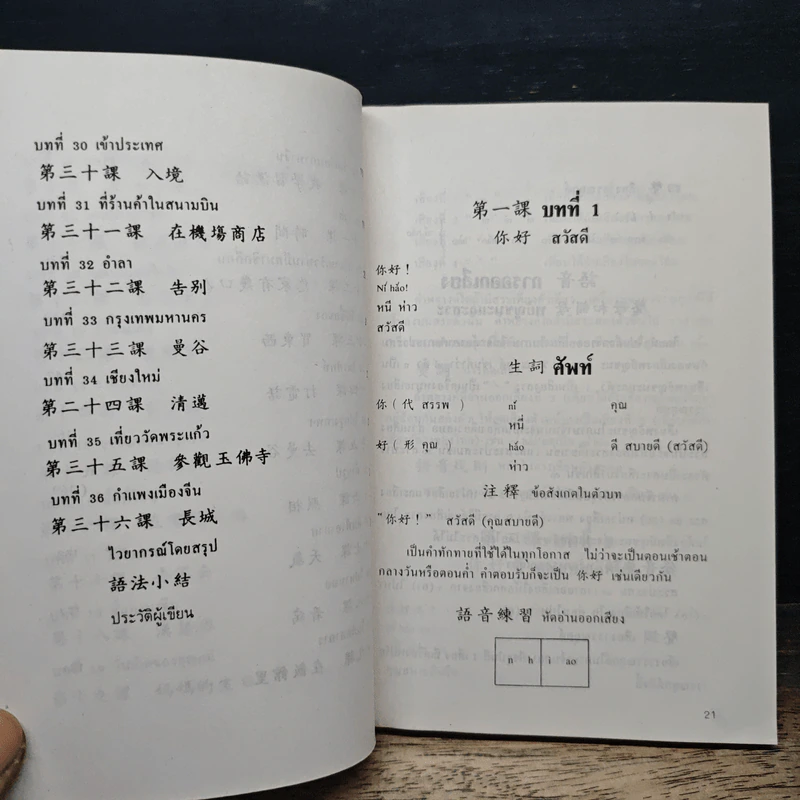 บทที่ 30 เข้าประเทศ
第三十課 入境
บทที่ 31 ที่ร้านค้าในสนามบิน
第三十一課 在機場商店
บทที่ 32 อำลา
第三十二課 告别
บทที่ 33 กรุงเทพมหานคร
第三十三課 曼谷
บทที่ 34 เชียงใหม่
第二十四課 清邁
บทที่ 35 เที่ยววัดพระแก้ว
第三十五課 參觀玉佛寺
บทที่ 36 กำแพงเมืองจีน
第三十六課 長城
ไวยากรณ์โดยสรุป
語法小結
ประวัติผู้เขียน
第一課 บทที่ 1
你好 สวัสดี
你好！
Nǐ hǎo!
หนี ห่าว
สวัสดี
生詞 ศัพท์
你 (代 สรรพ ) nǐ คุณ
หนี่
好 (形 คุณ ) hǎo ดี สบายดี (สวัสดี)
ห่าว
注釋 ข้อสังเกตในตัวบท
"你好！" สวัสดี (คุณสบายดี)
เป็นคำทักทายที่ใช้ได้ในทุกโอกาส ไม่ว่าจะเป็นตอนเช้าตอน
กลางวันหรือตอนค่ำ คำตอบรับก็จะเป็น 你好 เช่นเดียวกัน
語音練習 หัดอ่านออกเสียง
n h i ao
21